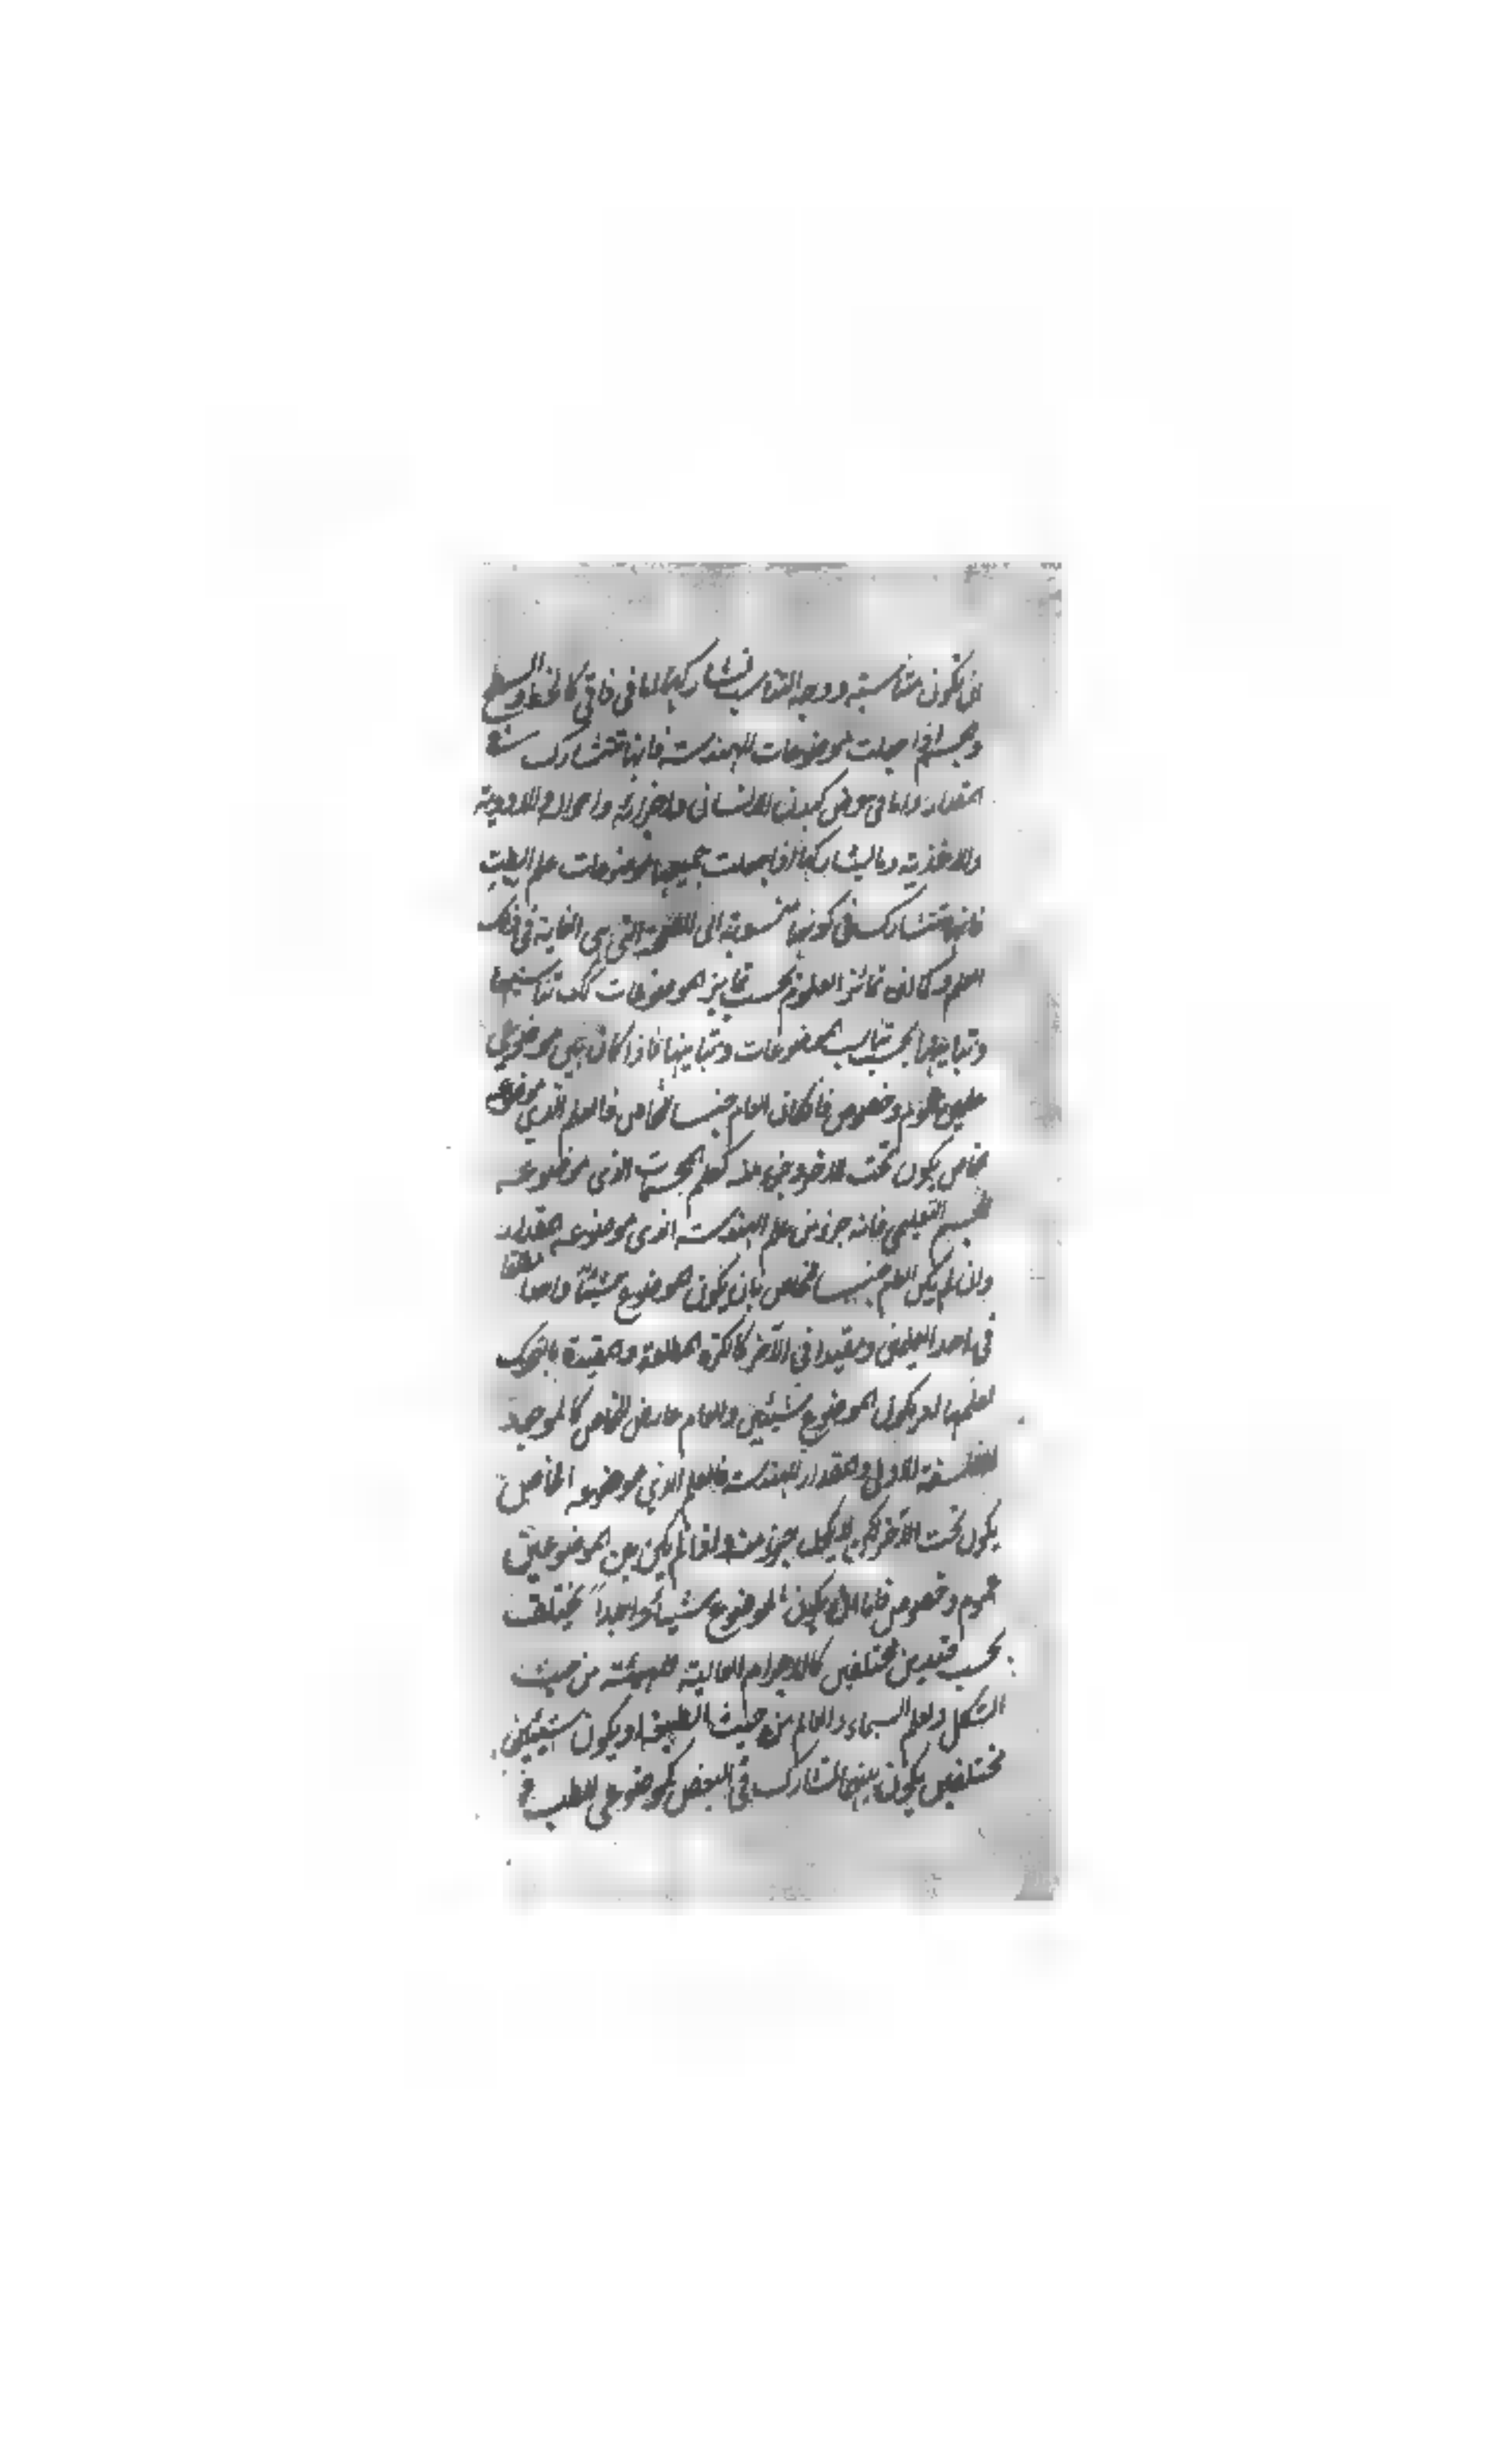 ان تكون متناسبة ووجه التناسب تشاركها اما في ذاتي كالخط والسطح
والجسم اذا جعلت موضوعات للهندسة فانها تتشارك في
المقدار واما في عرض كبدن الانسان واجزائه واحواله والادوية
والاغذية وما يشاركها اذا جعلت جميعها موضوعات علم الطب
فانها تتشارك في كونها منسوبة الى الصحة التي هي الغاية في ذلك
العلم وكما ان تمايز العلوم بحسب تمايز الموضوعات كذلك تناسبها
وتباينها بحسب تناسب الموضوعات وتباينها فاذا كان بين موضوعي
علمين عموم وخصوص فان كان العام جنسا للخاص فالعلم الذي موضوعه
الخاص يكون تحت الاخر وجزء منه كعلم المجسمات الذي موضوعه
الجسم التعليمي فانه جزء من علم الهندسة الذي موضوعه المقدار
وان لم يكن العام جنسا للخاص بان يكون الموضوع شيئا واحدا مطلقا
في احد العلمين ومقيدا في الآخر كالكرة المطلقة والمقيدة بالتحرك
لعلميها او يكون الموضوع شيئين والعام عارض للخاص كالموجود
للفلسفة الاولى والمقدار للهندسة فالعلم الذي موضوعه الخاص
يكون تحت الآخر لكن لا يكون جزء منه واذا لم يكن بين الموضوعين
عموم وخصوص فاما ان يكون الموضوع شيئا واحدا يختلف
بحسب قيدين مختلفين كالاجرام العالية للهيئة من حيث
الشكل ولعلم السماء والعالم من حيث الطبيعة او يكون شيئين
مختلفين يكون بينهما تشارك في البعض كموضوعي الطب و